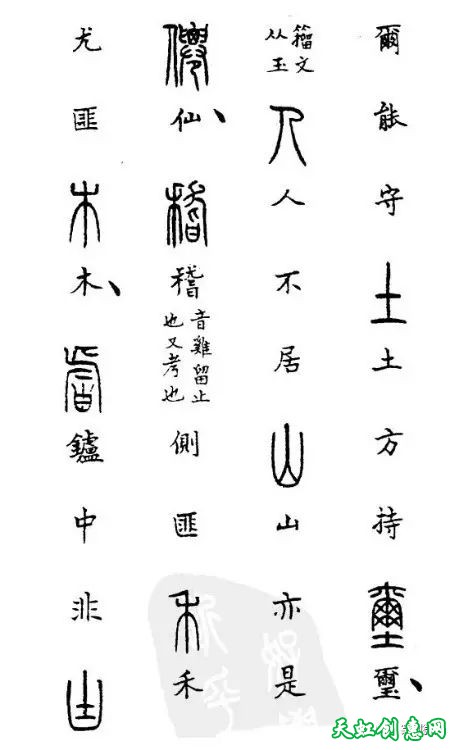 爾能守土土方持壐璽、
籀文从玉人人不居山山亦是
僊仙、稽稽音雞留止也又考也側匪禾禾
尤匪木木、鑪中非凷
天虹创意网